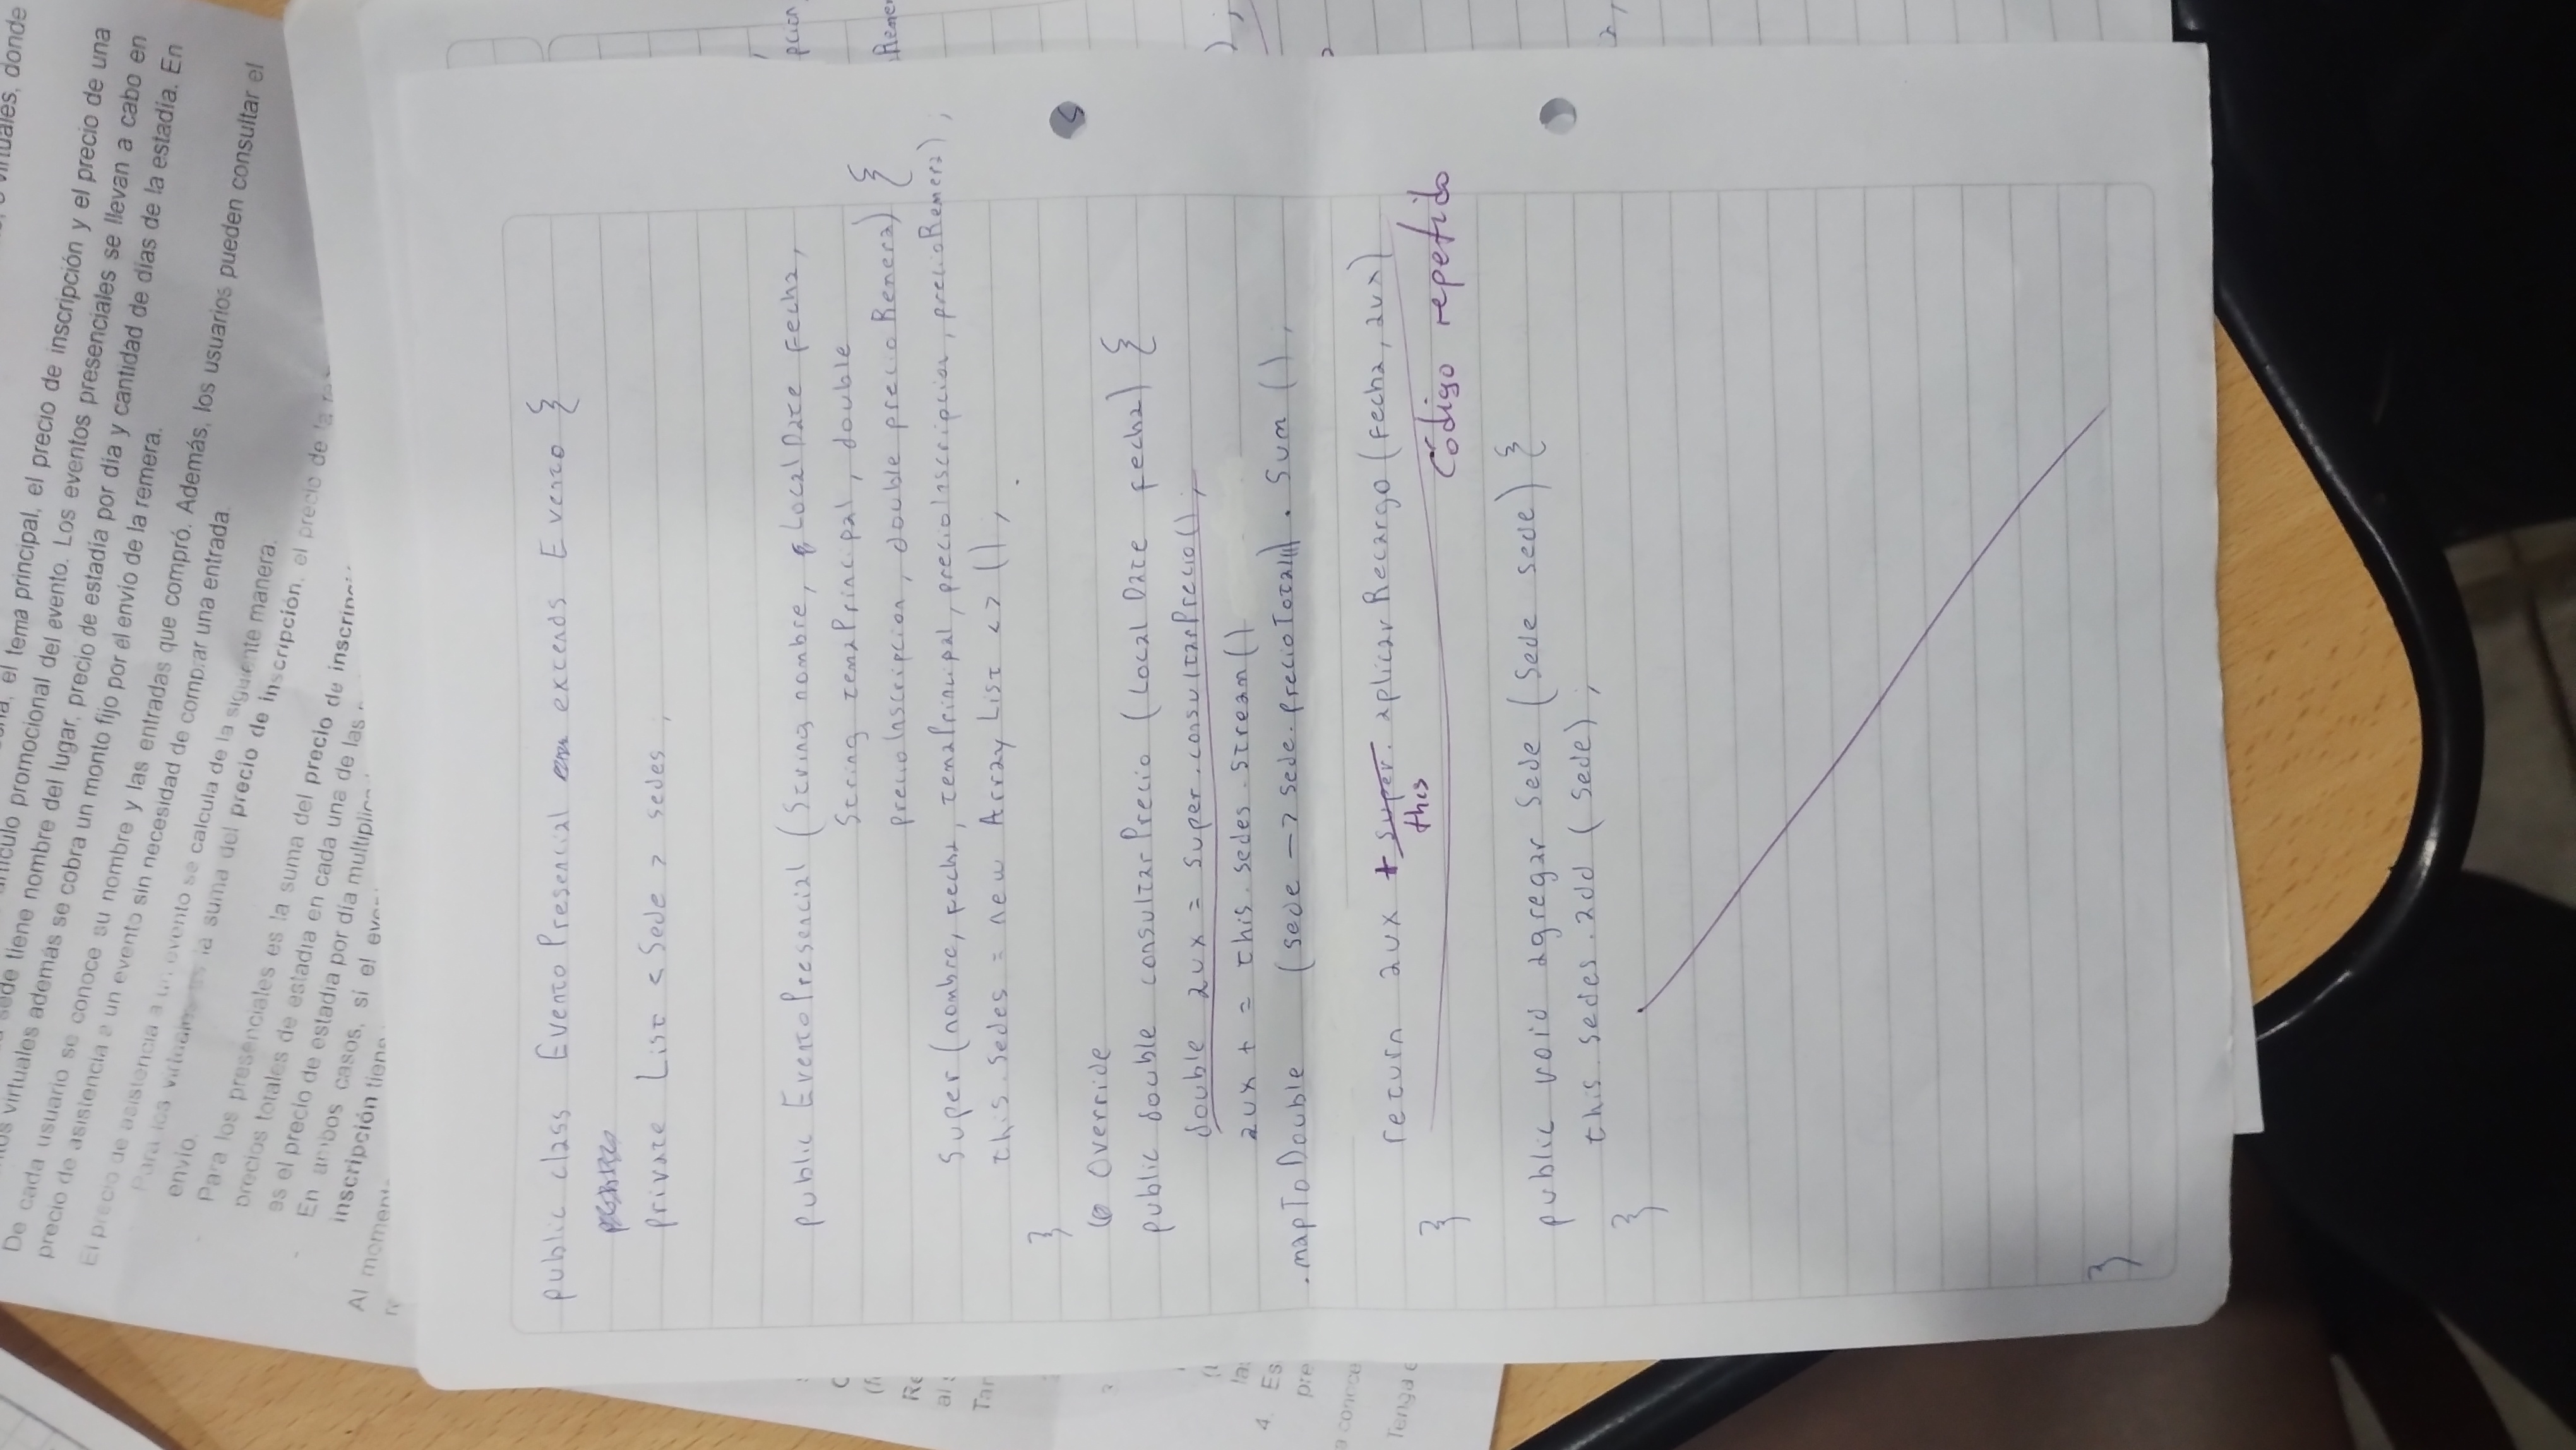 virtuales, donde
el tema principal, el precio de inscripción y el precio de una
promocional del evento. Los eventos presenciales se llevan a cabo en
sede tiene nombre del lugar, precio de estadía por día y cantidad de días de la estadía. En
virtuales además se cobra un monto fijo por el envío de la remera.
De cada usuario se conoce su nombre y las entradas que compró. Además, los usuarios pueden consultar el
precio de asistencia a un evento sin necesidad de comprar una entrada.
El precio de asistencia a un evento se calcula de la siguiente manera:
- Para los virtuales es la suma del precio de inscripción, el precio de la
envío.
- Para los presenciales es la suma del precio de
precios totales de estadía en cada una de las
es el precio de estadía por día
- En ambos casos, si el
inscripción tiene
Al
public class EventoPresencial extends Evento {
private List < Sede > sedes ;
public EventoPresencial (String nombre, LocalDate fecha,
String temaPrincipal, double
precioInscripcion, double precioRemera) {
super (nombre, fecha, temaPrincipal, precioInscripcion, precioRemera) ;
this.sedes = new ArrayList <> () ;
}
@ Override
public double consultarPrecio (LocalDate fecha) {
double aux = super.consultarPrecio() ;
aux + = this.sedes.stream()
.mapToDouble (sede -> sede.precioTotal()) . sum () ;
return aux + super. aplicarRecargo (fecha, aux)
this
} Código repetido
public void agregar Sede (Sede sede) {
this.sedes.add ( sede) ;
}
}
Re
al
Tar
la
4. Es
pre
a conoce
Tenga
pcion